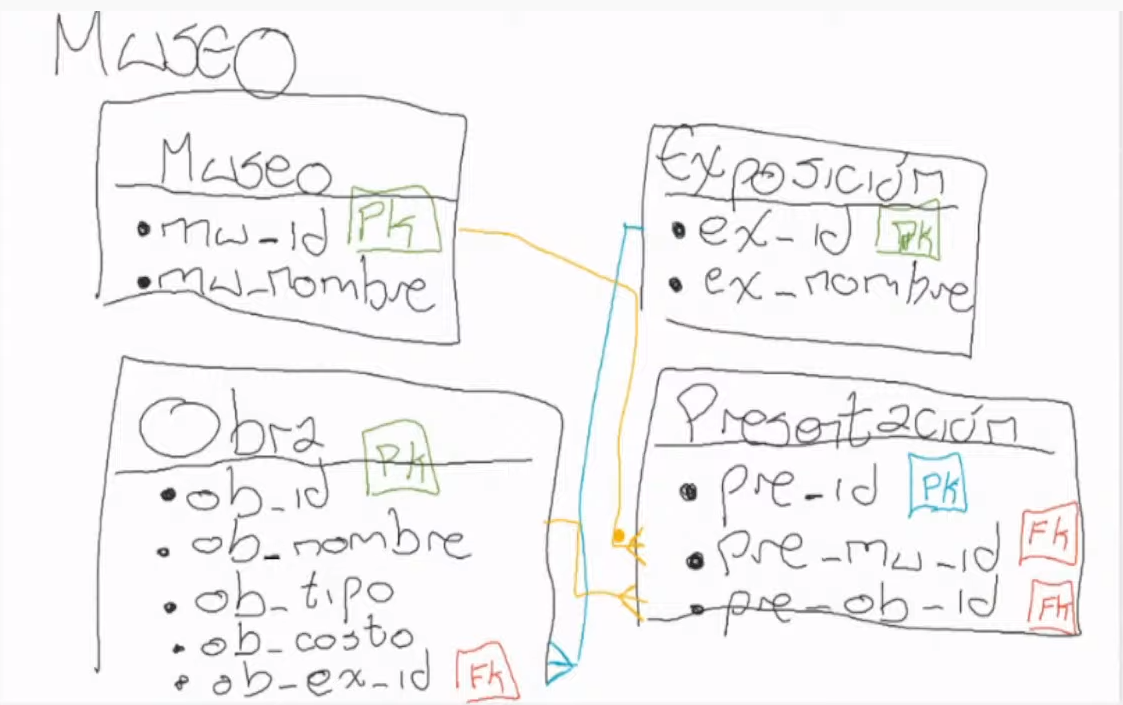 Museo
Museo
mu_id PK
mu_nombre
Exposición
ex_id PK
ex_nombre
Obra
ob_id PK
ob_nombre
ob_tipo
ob_costo
ob_ex_id FK
Presentación
pre_id PK
pre_mu_id FK
pre_ob_id FK